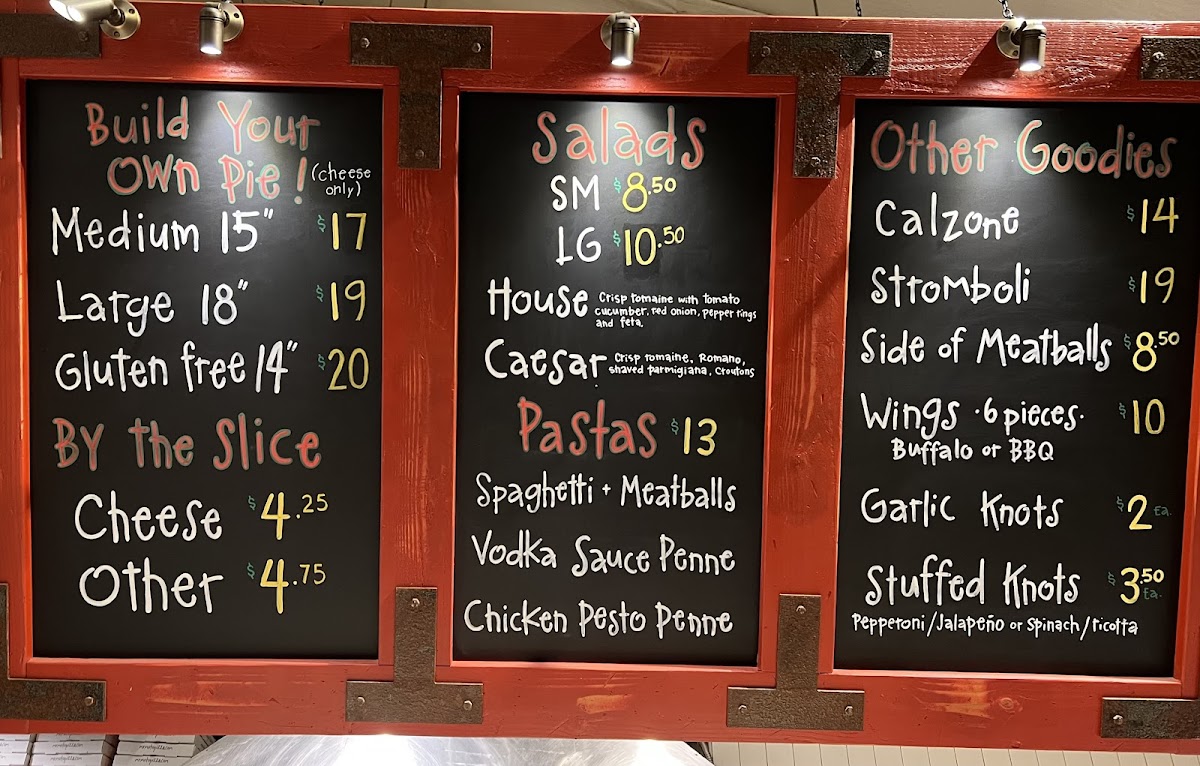 Build Your
Own Pie! (cheese only)
Medium 15" $17
Large 18" $19
Gluten free 14" $20
By the Slice
Cheese $4.25
Other $4.75
Salads
SM $8.50
LG $10.50
House Crisp romaine with tomato
cucumber, red onion, pepper rings
and feta.
Caesar Crisp romaine, Romano,
shaved parmigiana, Croutons
Pastas $13
Spaghetti + Meatballs
Vodka Sauce Penne
Chicken Pesto Penne
Other Goodies
Calzone $14
Stromboli $19
Side of Meatballs $8.50
Wings ·6 pieces· $10
Buffalo or BBQ
Garlic Knots $2 Ea.
Stuffed Knots $3.50 Ea.
Pepperoni/Jalapeño or Spinach/ricotta